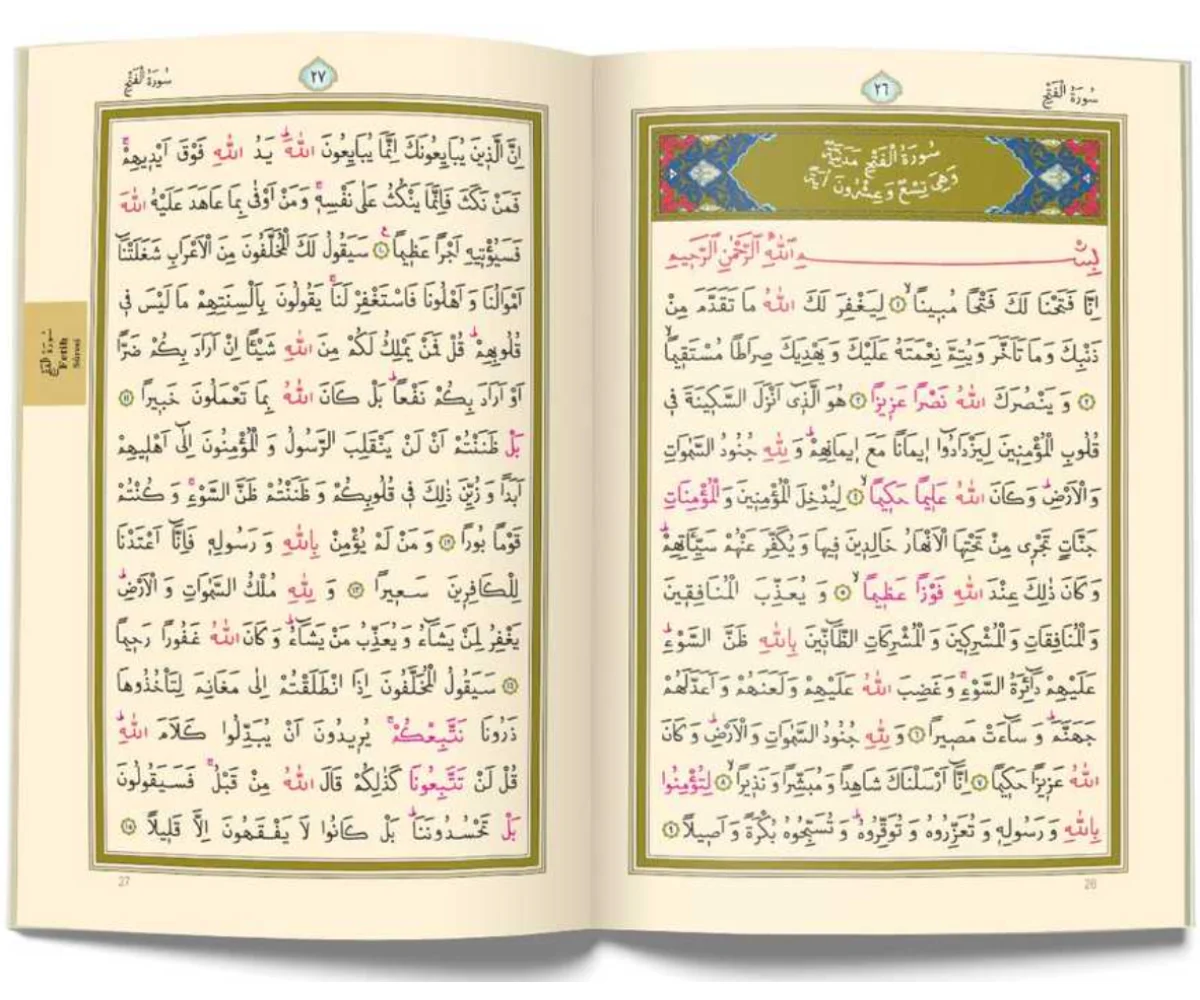 سُورَةُ الْفَتْحِ
٢٦
سُورَةُ الْفَتْحِ مَدَنِيَّةٌ
وَهِيَ تِسْعٌ وَعِشْرُونَ اٰيَةً
بِسْمِ اللّٰهِ الرَّحْمٰنِ الرَّحِيمِ
اِنَّا فَتَحْنَا لَكَ فَتْحًا مُبِينًاۙ ﴿١﴾ لِيَغْفِرَ لَكَ اللّٰهُ مَا تَقَدَّمَ مِنْ
ذَنْبِكَ وَمَا تَاَخَّرَ وَيُتِمَّ نِعْمَتَهُ عَلَيْكَ وَيَهْدِيَكَ صِرَاطًا مُسْتَقِيمًاۙ
﴿٢﴾ وَيَنْصُرَكَ اللّٰهُ نَصْرًا عَزِيزًا ﴿٣﴾ هُوَ الَّذ۪ٓي اَنْزَلَ السَّكِينَةَ فِي
قُلُوبِ الْمُؤْمِنِينَ لِيَزْدَادُٓوا اِيمَانًا مَعَ اِيمَانِهِمْۜ وَلِلّٰهِ جُنُودُ السَّمٰوَاتِ
وَالْاَرْضِۜ وَكَانَ اللّٰهُ عَلِيمًا حَكِيمًاۙ ﴿٤﴾ لِيُدْخِلَ الْمُؤْمِنِينَ وَالْمُؤْمِنَاتِ
جَنَّاتٍ تَجْرِي مِنْ تَحْتِهَا الْاَنْهَارُ خَالِدِينَ فِيهَا وَيُكَفِّرَ عَنْهُمْ سَيِّـَٔاتِهِمْۜ
وَكَانَ ذٰلِكَ عِنْدَ اللّٰهِ فَوْزًا عَظِيمًاۙ ﴿٥﴾ وَيُعَذِّبَ الْمُنَافِقِينَ
وَالْمُنَافِقَاتِ وَالْمُشْرِكِينَ وَالْمُشْرِكَاتِ الظَّٓانِّينَ بِاللّٰهِ ظَنَّ السَّوْءِۜ
عَلَيْهِمْ دَٓائِرَةُ السَّوْءِۚ وَغَضِبَ اللّٰهُ عَلَيْهِمْ وَلَعَنَهُمْ وَاَعَدَّ لَهُمْ
جَهَنَّمَۜ وَسَٓاءَتْ مَصِيرًا ﴿٦﴾ وَلِلّٰهِ جُنُودُ السَّمٰوَاتِ وَالْاَرْضِۜ وَكَانَ
اللّٰهُ عَزِيزًا حَكِيمًا ﴿٧﴾ اِنَّٓا اَرْسَلْنَاكَ شَاهِدًا وَمُبَشِّرًا وَنَذِيرًاۙ ﴿٨﴾ لِتُؤْمِنُوا
بِاللّٰهِ وَرَسُولِهِ وَتُعَزِّرُوهُ وَتُوَقِّرُوهُۜ وَتُسَبِّحُوهُ بُكْرَةً وَاَصِيلًا ﴿٩﴾
26
سُورَةُ الْفَتْحِ
٢٧
اِنَّ الَّذِينَ يُبَايِعُونَكَ اِنَّمَا يُبَايِعُونَ اللّٰهَۜ يَدُ اللّٰهِ فَوْقَ اَيْدِيهِمْۚ
فَمَنْ نَكَثَ فَاِنَّمَا يَنْكُثُ عَلٰى نَفْسِهِۚ وَمَنْ اَوْفٰى بِمَا عَاهَدَ عَلَيْهُ اللّٰهَ
فَسَيُؤْتِيهِ اَجْرًا عَظِيمًا ﴿١٠﴾ سَيَقُولُ لَكَ الْمُخَلَّفُونَ مِنَ الْاَعْرَابِ شَغَلَتْنَٓا
اَمْوَالُنَا وَاَهْلُونَا فَاسْتَغْفِرْ لَنَاۚ يَقُولُونَ بِاَلْسِنَتِهِمْ مَا لَيْسَ فِي
قُلُوبِهِمْۜ قُلْ فَمَنْ يَمْلِكُ لَكُمْ مِنَ اللّٰهِ شَيْـًٔا اِنْ اَرَادَ بِكُمْ ضَرًّا
اَوْ اَرَادَ بِكُمْ نَفْعًاۜ بَلْ كَانَ اللّٰهُ بِمَا تَعْمَلُونَ خَبِيرًا ﴿١١﴾
بَلْ ظَنَنْتُمْ اَنْ لَنْ يَنْقَلِبَ الرَّسُولُ وَالْمُؤْمِنُونَ اِلٰٓى اَهْلِيهِمْ
اَبَدًا وَزُيِّنَ ذٰلِكَ فِي قُلُوبِكُمْ وَظَنَنْتُمْ ظَنَّ السَّوْءِۚ وَكُنْتُمْ
قَوْمًا بُورًا ﴿١٢﴾ وَمَنْ لَمْ يُؤْمِنْ بِاللّٰهِ وَرَسُولِهِ فَاِنَّٓا اَعْتَدْنَا
لِلْكَافِرِينَ سَعِيرًا ﴿١٣﴾ وَلِلّٰهِ مُلْكُ السَّمٰوَاتِ وَالْاَرْضِۜ
يَغْفِرُ لِمَنْ يَشَٓاءُ وَيُعَذِّبُ مَنْ يَشَٓاءُۜ وَكَانَ اللّٰهُ غَفُورًا رَحِيمًا
﴿١٤﴾ سَيَقُولُ الْمُخَلَّفُونَ اِذَا انْطَلَقْتُمْ اِلٰى مَغَانِمَ لِتَأْخُذُوهَا
ذَرُونَا نَتَّبِعْكُمْۚ يُرِيدُونَ اَنْ يُبَدِّلُوا كَلَامَ اللّٰهِۜ
قُلْ لَنْ تَتَّبِعُونَا كَذٰلِكُمْ قَالَ اللّٰهُ مِنْ قَبْلُۚ فَسَيَقُولُونَ
بَلْ تَحْسُدُونَنَاۜ بَلْ كَانُوا لَا يَفْقَهُونَ اِلَّا قَلِيلًا ﴿١٥﴾
27
سُورَةُ الْفَتْحِ
Fetih
Sûresi